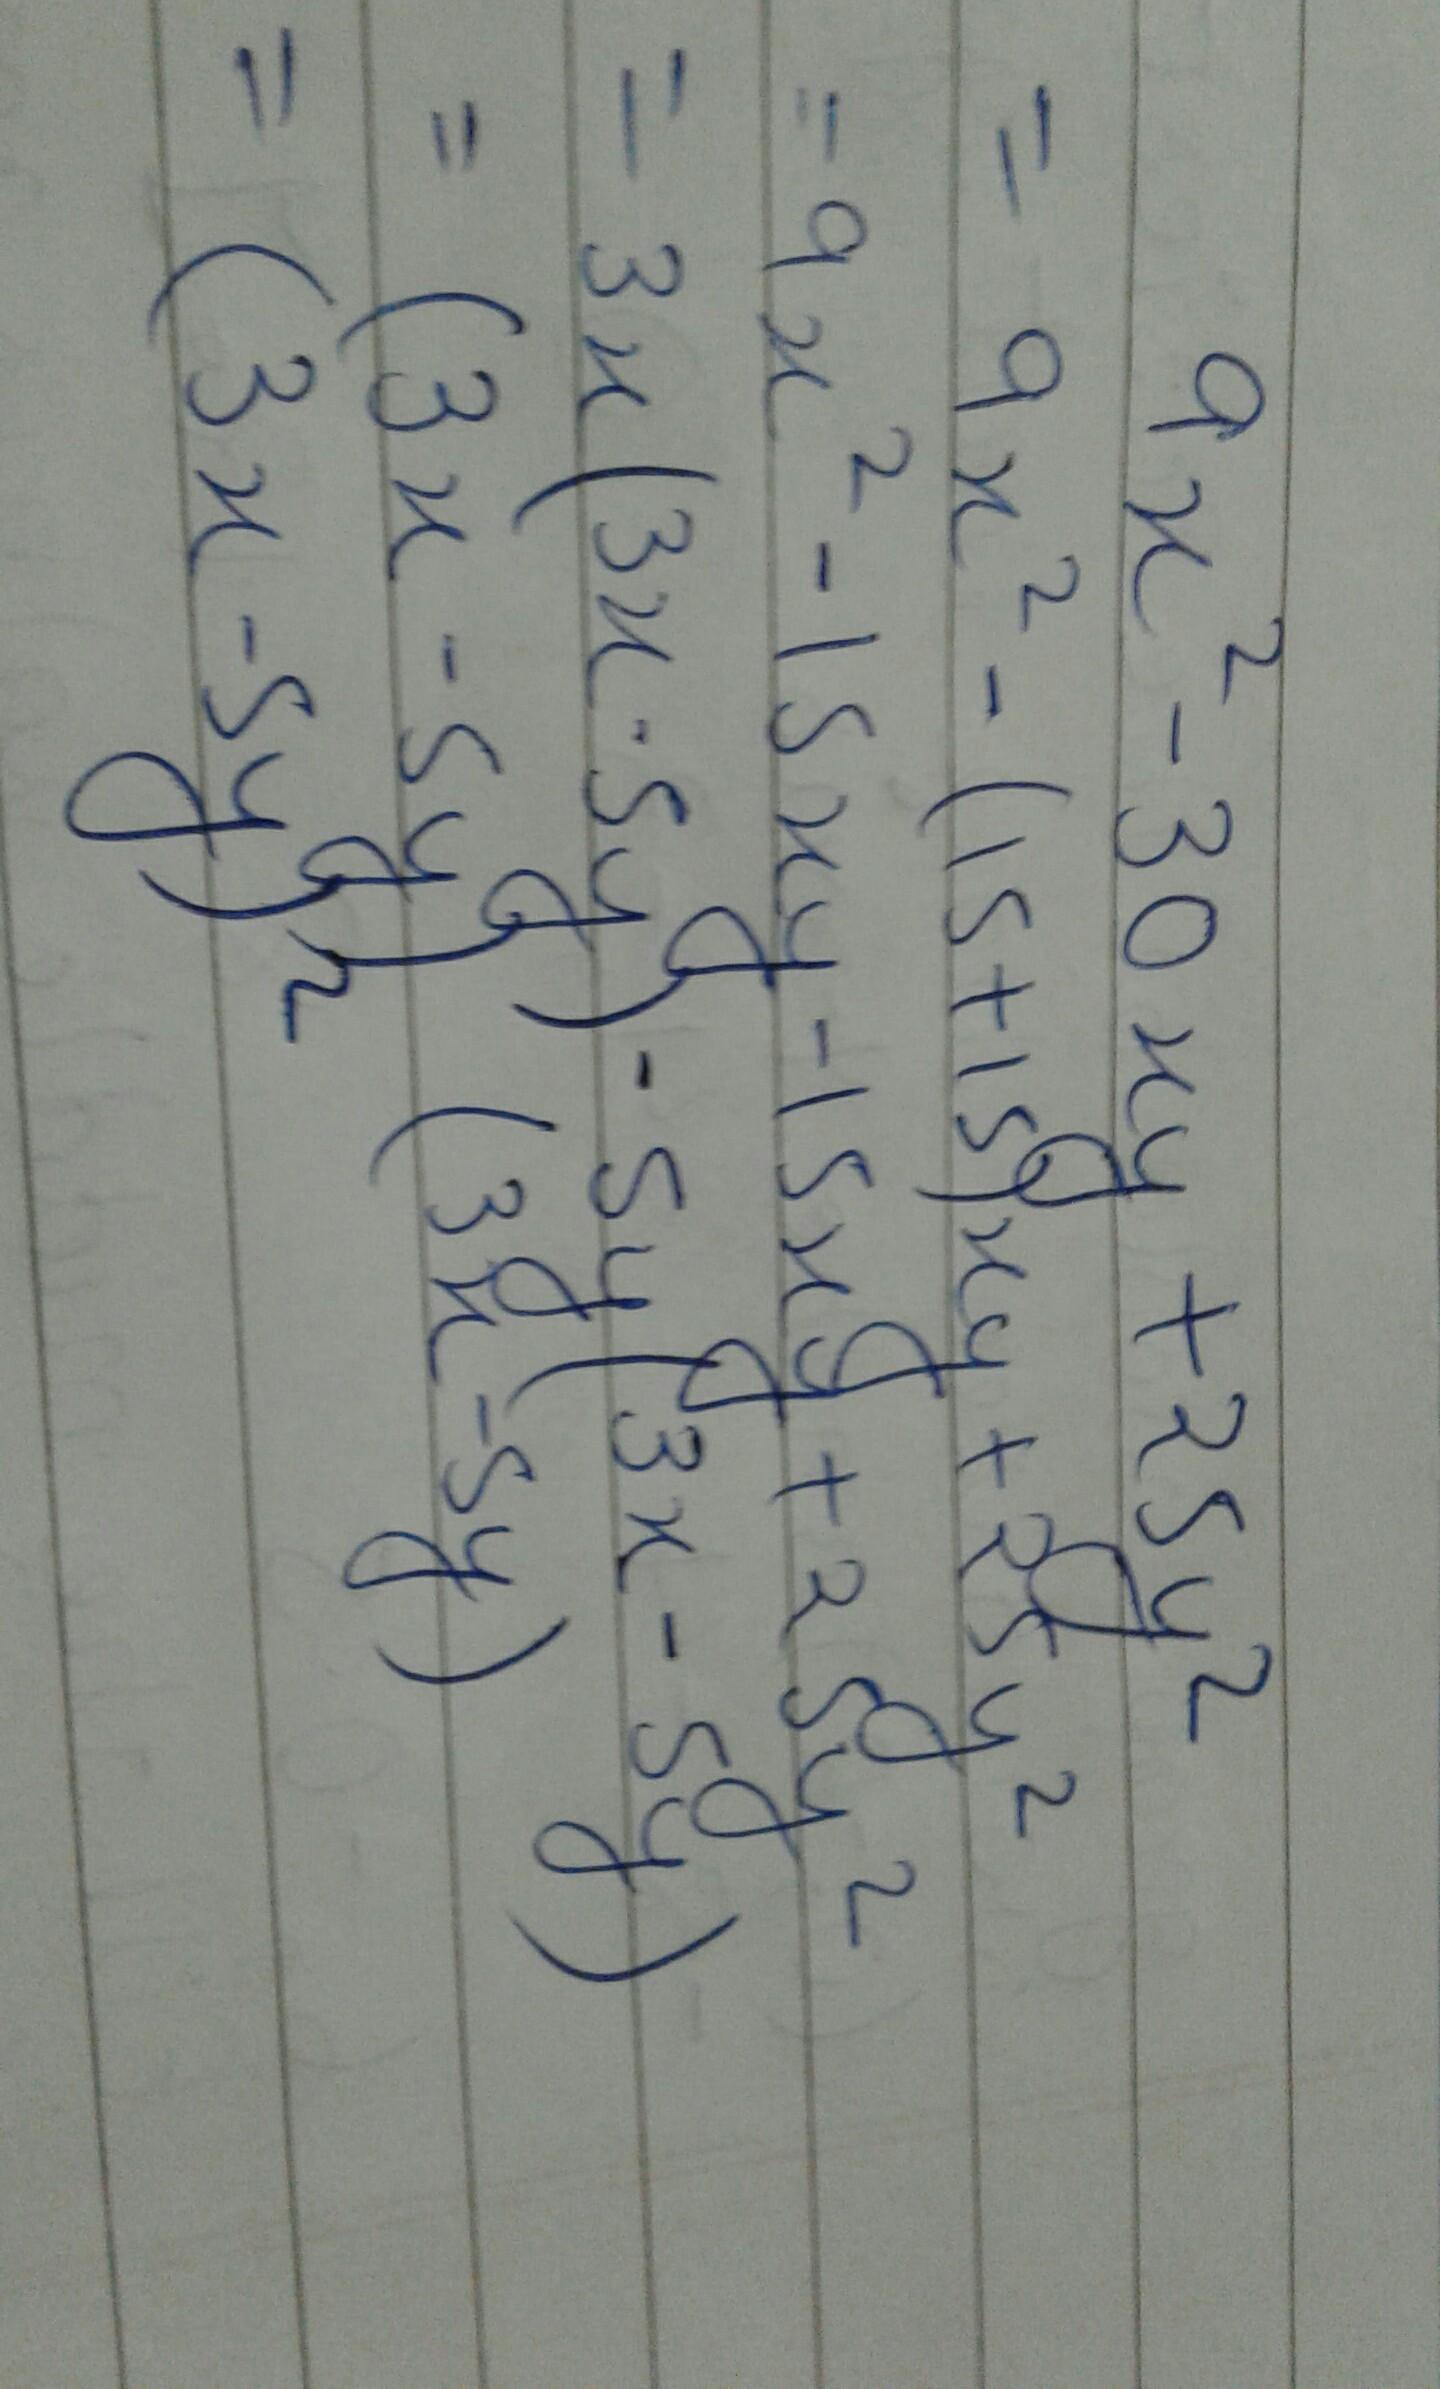 9x² - 30xy + 25y²
= 9x² - (15+15)xy + 25y²
= 9x² - 15xy - 15xy + 25y²
= 3x(3x - 5y) - 5y(3x - 5y)
= (3x - 5y) (3x - 5y)
= (3x - 5y)²